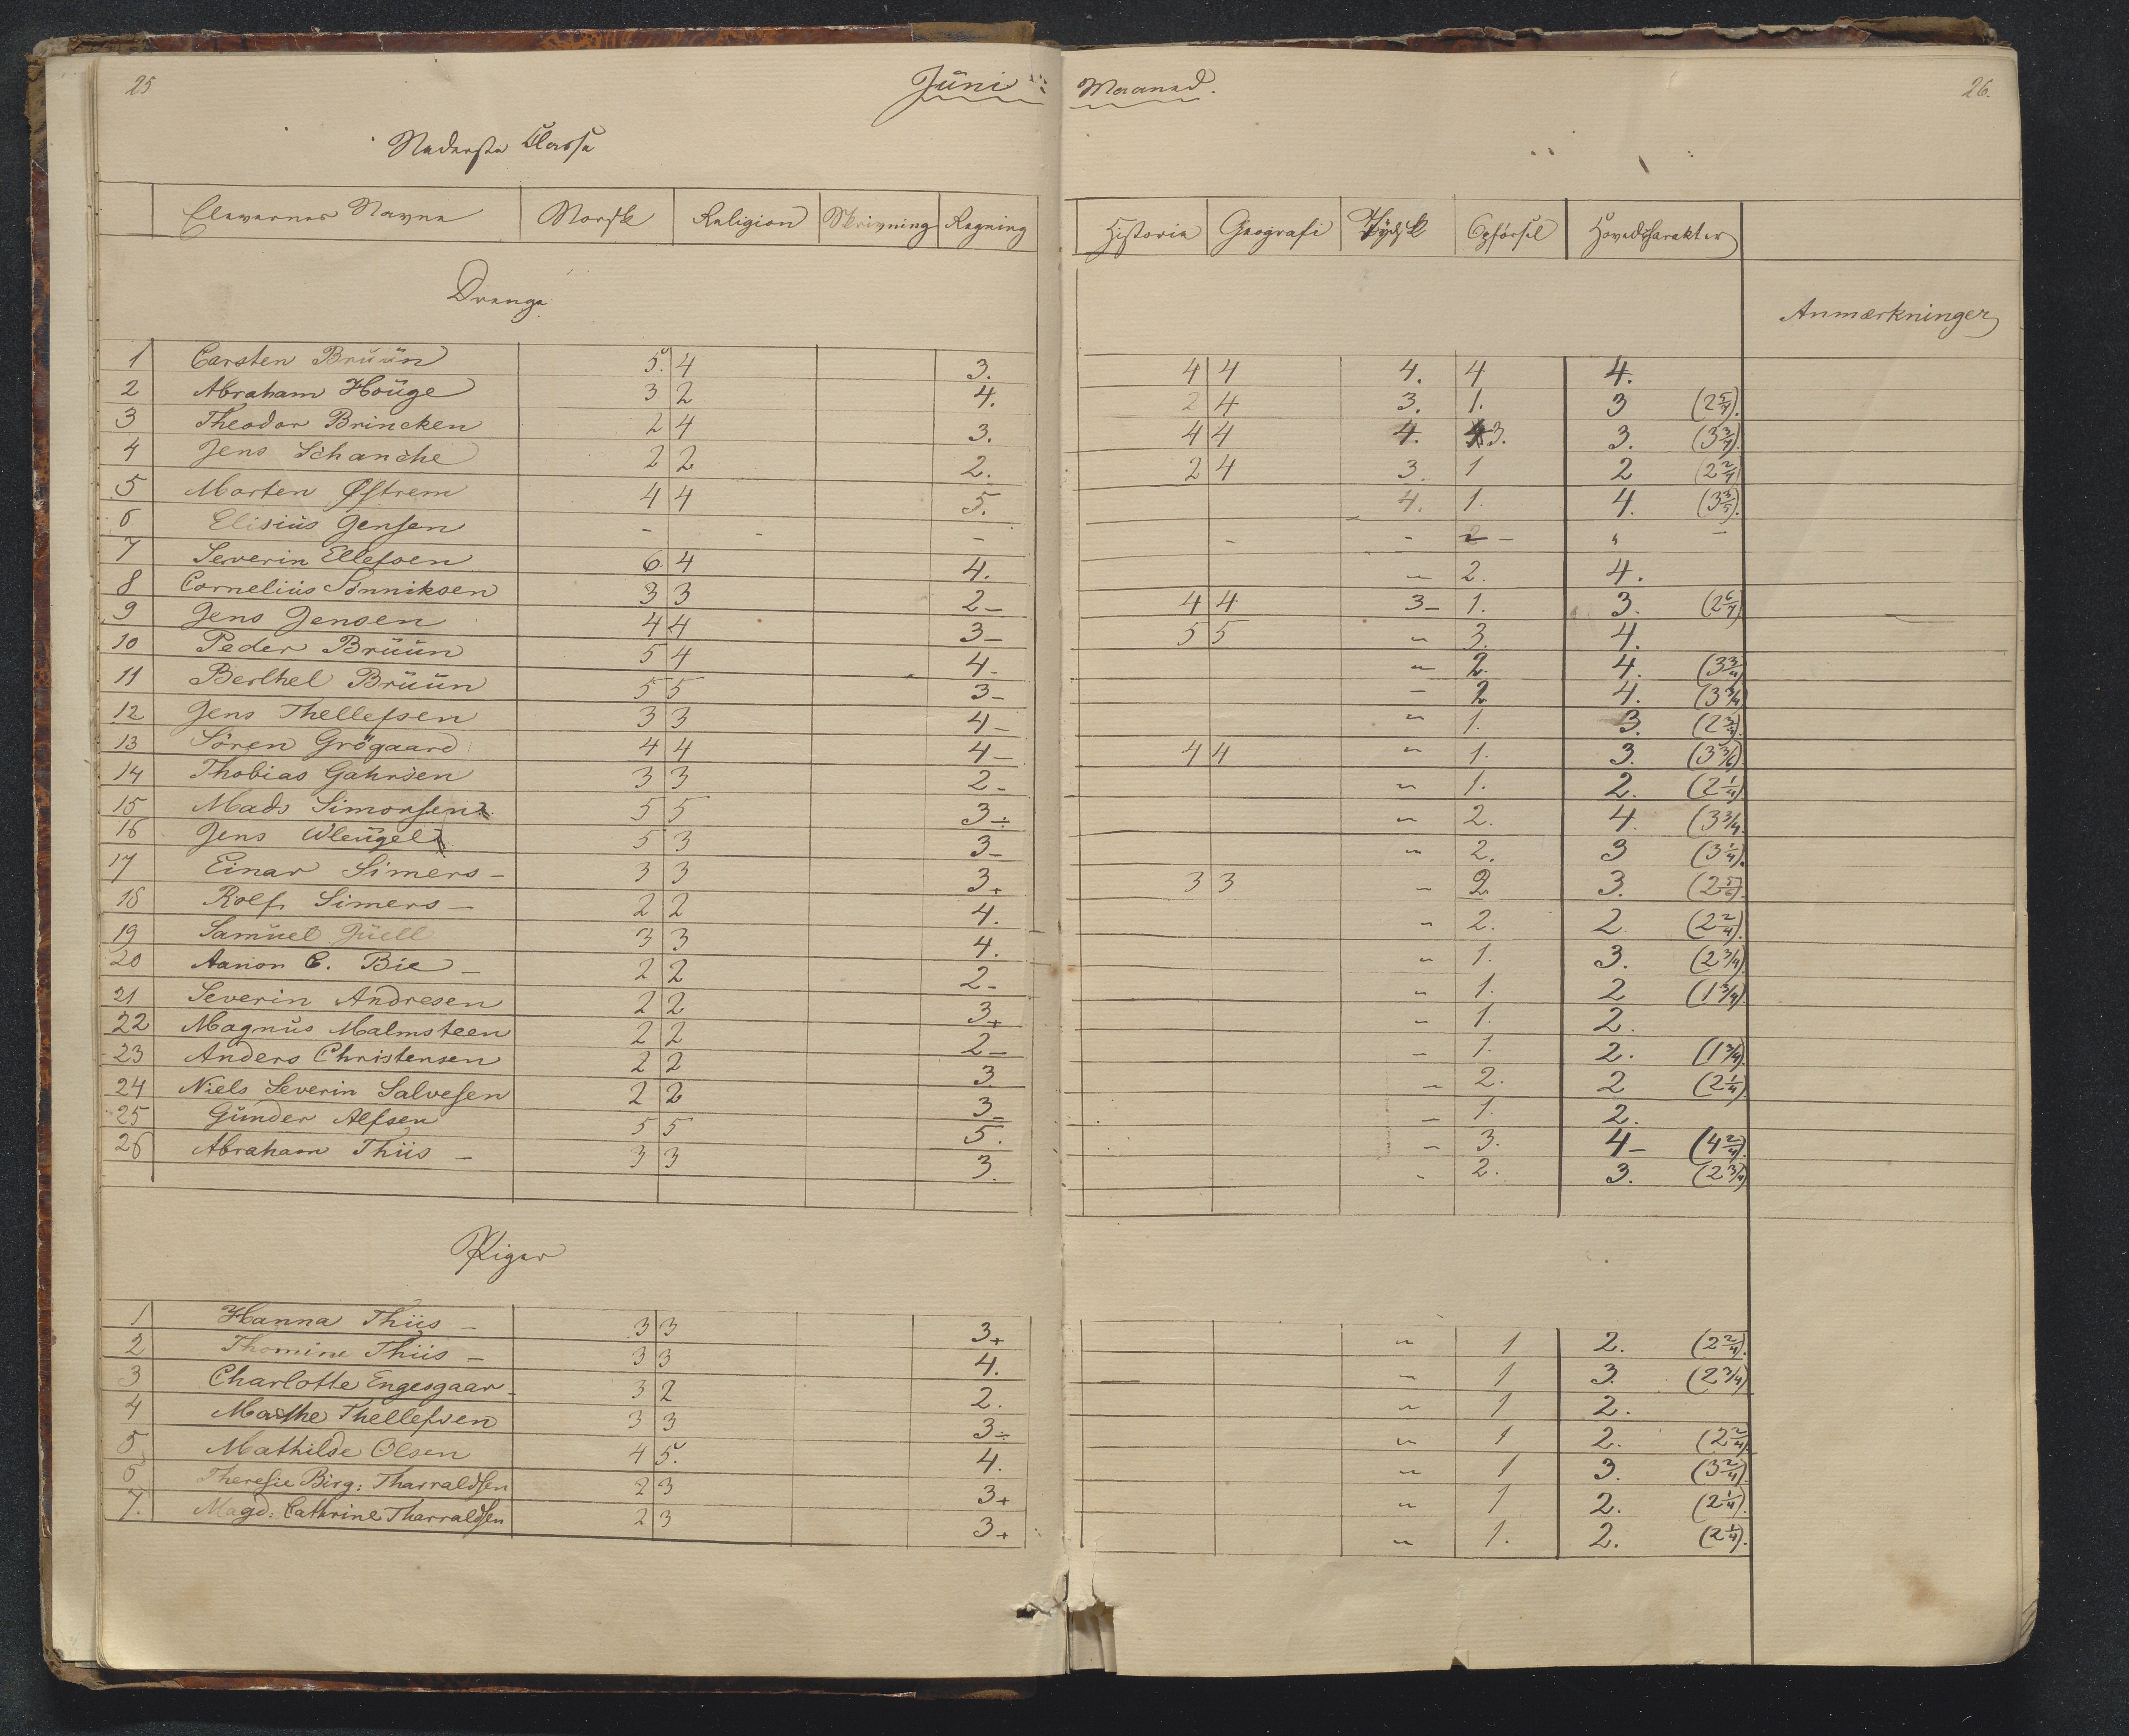 25
Juni
Maaned.
26.
Nederste Classe
Elevernes Navne Norsk Religion Skrivning Regning Historie Geografi Tydsk Opførsel Hovedcharakter
Anmærkninger
Drenge
1 Carsten Bruun 5. 4 3. 4 4 4. 4 4.
2 Abraham Houge 3 2 4. 2 4 3. 1. 3 (2 5/7).
3 Theodor Brincken 2 4 3. 4 4 4. 3. 3. (3 3/7).
4 Jens Schanche 2 2 2. 2 4 3. 1 2 (2 2/7)
5 Morten Østrem 4 4 5. 4. 1. 4. (3 3/5).
6 Elisius Jensen - - - - - 2 - " -
7 Severin Ellefsen 6 4 4. " 2. 4.
8 Cornelius Sønniksen 3 3 2- 4 4 3- 1. 3. (2 6/7)
9 Jens Jensen 4 4 3- 5 5 " 3. 4.
10 Peder Bruun 5 4 4- " 2. 4. (3 3/4)
11 Berthel Bruun 5 5 3- - 2 4. (3 3/4)
12 Jens Thellefsen 3 3 4- " 1. 3. (2 3/4).
13 Sören Grögaard 4 4 4- 4 4 " 1. 3. (3 3/6)
14 Thobias Gahrsen 3 3 2- " 1. 2. (2 1/4)
15 Mads Simonsen 5 5 3÷ " 2. 4. (3 3/4.
16 Jens Wleugel 5 3 3- " 2. 3 (3 1/4).
17 Einar Simers - 3 3 3+ 3 3 " 2 3. (2 5/6).
18 Rolf Simers - 2 2 4. " 2. 2 (2 2/4).
19 Samuel Juell 3 3 4. " 1. 3. (2 3/4).
20 Aanon C. Bie - 2 2 2- " 1. 2 (1 3/4).
21 Severin Andresen 2 2 3+ " 1. 2.
22 Magnus Malmsteen 2 2 2- " 1. 2. (1 3/4).
23 Anders Christensen 2 2 3 " 2. 2 (2 1/4)
24 Niels Severin Salvesen 2 2 3- - 1. 2.
25 Gunder Alfsen 5 5 5. " 3. 4- (4 2/4).
26 Abraham Thiis - 3 3 3. " 2. 3. (2 3/4)
Piger
1 Hanna Thiis - 3 3 3+ " 1 2. (2 2/4).
2 Thomine Thiis - 3 3 4. " 1 3. (2 3/4)
3 Charlotte Engesgaar- 3 2 2. " 1 2.
4 Marthe Thellefsen 3 3 3÷ " 1 2. (2 2/4)
5 Mathilde Olsen 4 5. 4. " 1 3. (3 2/4).
6 Theresie Birg: Tharraldsen 2 3 3+ " 1 2. (2 1/4).
7. Magd: Cathrine Tharraldsen 2 3 3+ " 1. 2. (2 1/4).